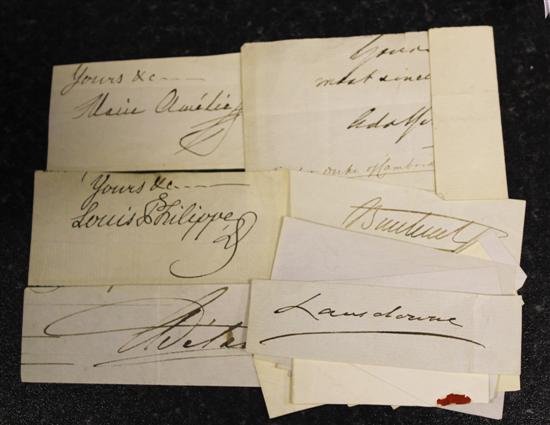 Yours &c
Marie Amélie
Yours
most since
Adolph
Duke of Cambri
Yours &c
Louis Philippe
Lansdowne